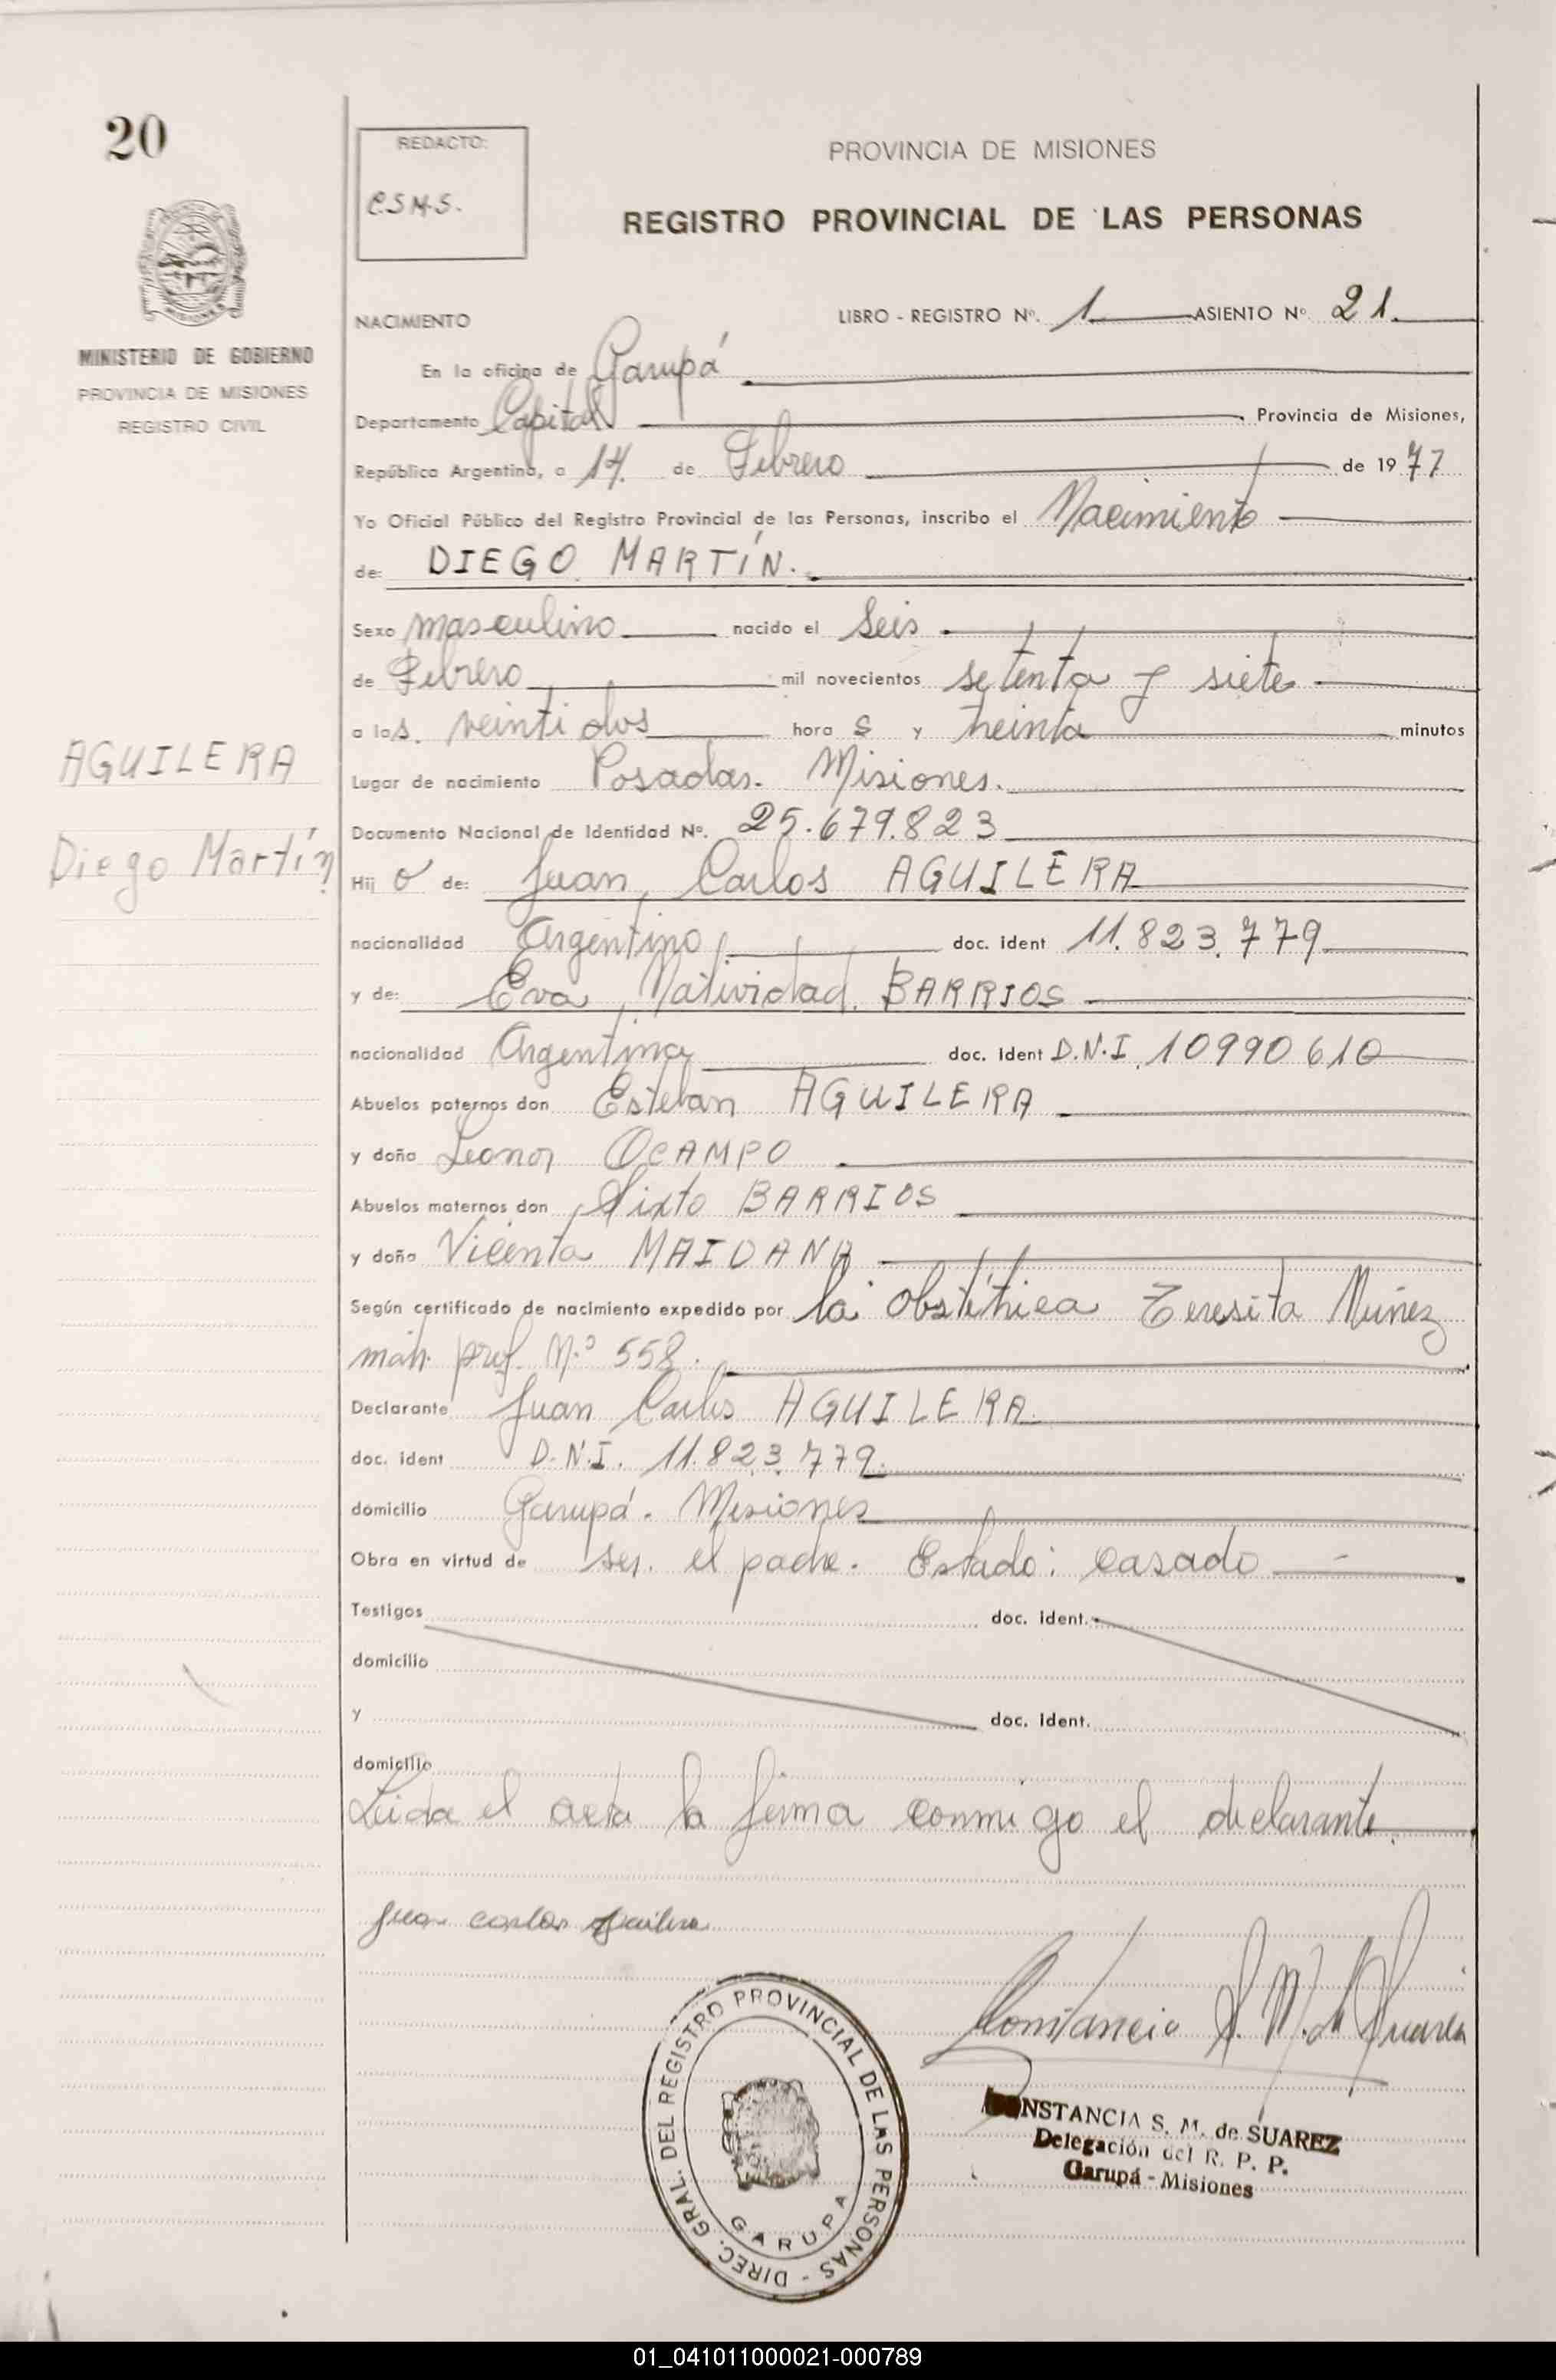 20
REDACTO:
C.S.M.S.
PROVINCIA DE MISIONES
REGISTRO PROVINCIAL DE LAS PERSONAS
MINISTERIO DE GOBIERNO
PROVINCIA DE MISIONES
REGISTRO CIVIL
NACIMIENTO LIBRO - REGISTRO Nº. 1 ASIENTO Nº 21.
En la oficina de Garupá
Departamento Capital Provincia de Misiones,
República Argentina, a 14. de Febrero de 1977
Yo Oficial Público del Registro Provincial de las Personas, inscribo el Nacimiento
de: DIEGO MARTÍN.
Sexo masculino nacido el seis
de Febrero mil novecientos setenta y siete
a las. veintidos hora s y treinta minutos
AGUILERA
Diego Martín
Lugar de nacimiento Posadas. Misiones.
Documento Nacional de Identidad Nº. 25.679.823
Hij o de: Juan Carlos AGUILERA
nacionalidad Argentino doc. ident 11.823.779
y de: Eva Natividad BARRIOS
nacionalidad Argentina doc. ident D.N.I. 10990610
Abuelos paternos don Esteban AGUILERA
y doña Leonor OCAMPO
Abuelos maternos don Sixto BARRIOS
y doña Vicenta MAIDANA
Según certificado de nacimiento expedido por la Obstétrica Teresita Nuñez
matr. prof. N.º 558.
Declarante Juan Carlos AGUILERA
doc. ident D.N.I. 11.823.779.
domicilio Garupá. Misiones
Obra en virtud de ser el padre. Estado: casado
Testigos doc. ident.
domicilio
y doc. ident.
domicilio
Leida el acta la firma conmigo el declarante.
Juan carlos Aguilera
Constancia S. M. de Suarez
DIREC. GRAL. DEL REGISTRO PROVINCIAL DE LAS PERSONAS -
GARUPA
CONSTANCIA S. M. de SUAREZ
Delegación del R. P. P.
Garupá - Misiones
01_041011000021-000789